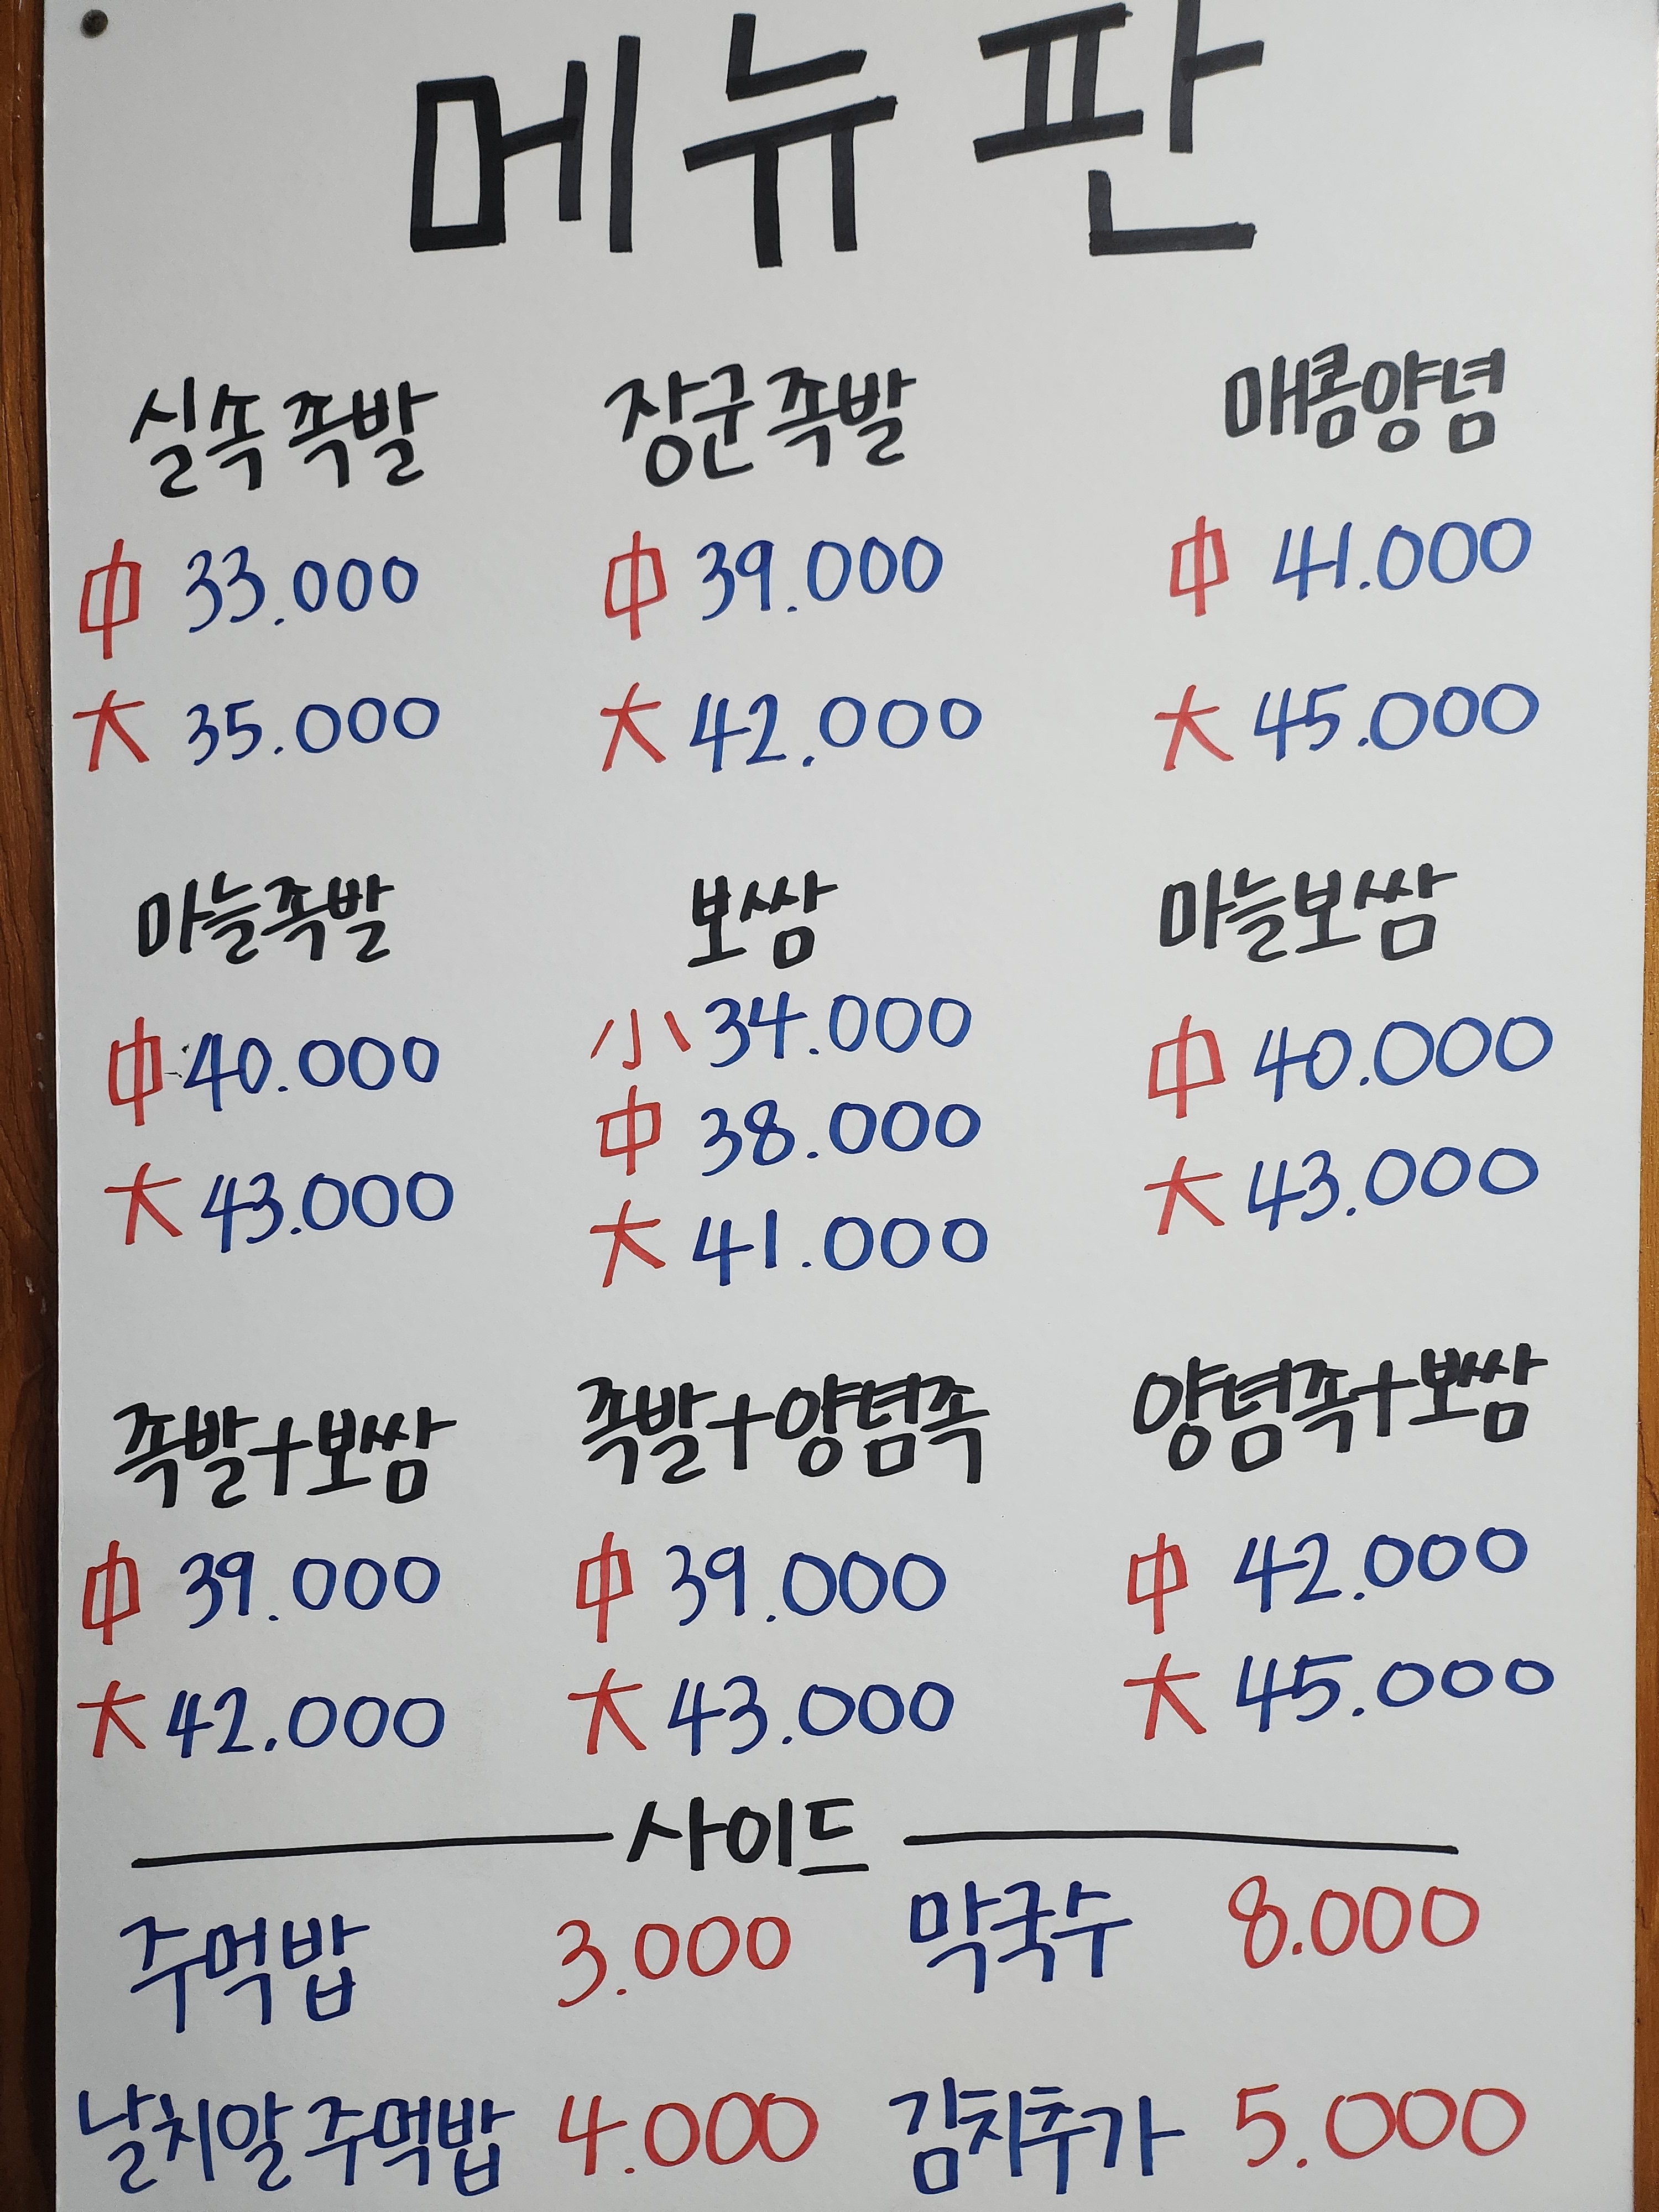 메뉴판
실속족발 장군족발 매콤양념
中 33.000 中 39.000 中 41.000
大 35.000 大 42.000 大 45.000
마늘족발 보쌈 마늘보쌈
小 34.000
中 40.000 中 38.000 中 40.000
大 43.000 大 41.000 大 43.000
족발+보쌈 족발+양념족 양념족+보쌈
中 39.000 中 39.000 中 42.000
大 42.000 大 43.000 大 45.000
사이드
주먹밥 3.000 막국수 8.000
날치알 주먹밥 4.000 김치추가 5.000